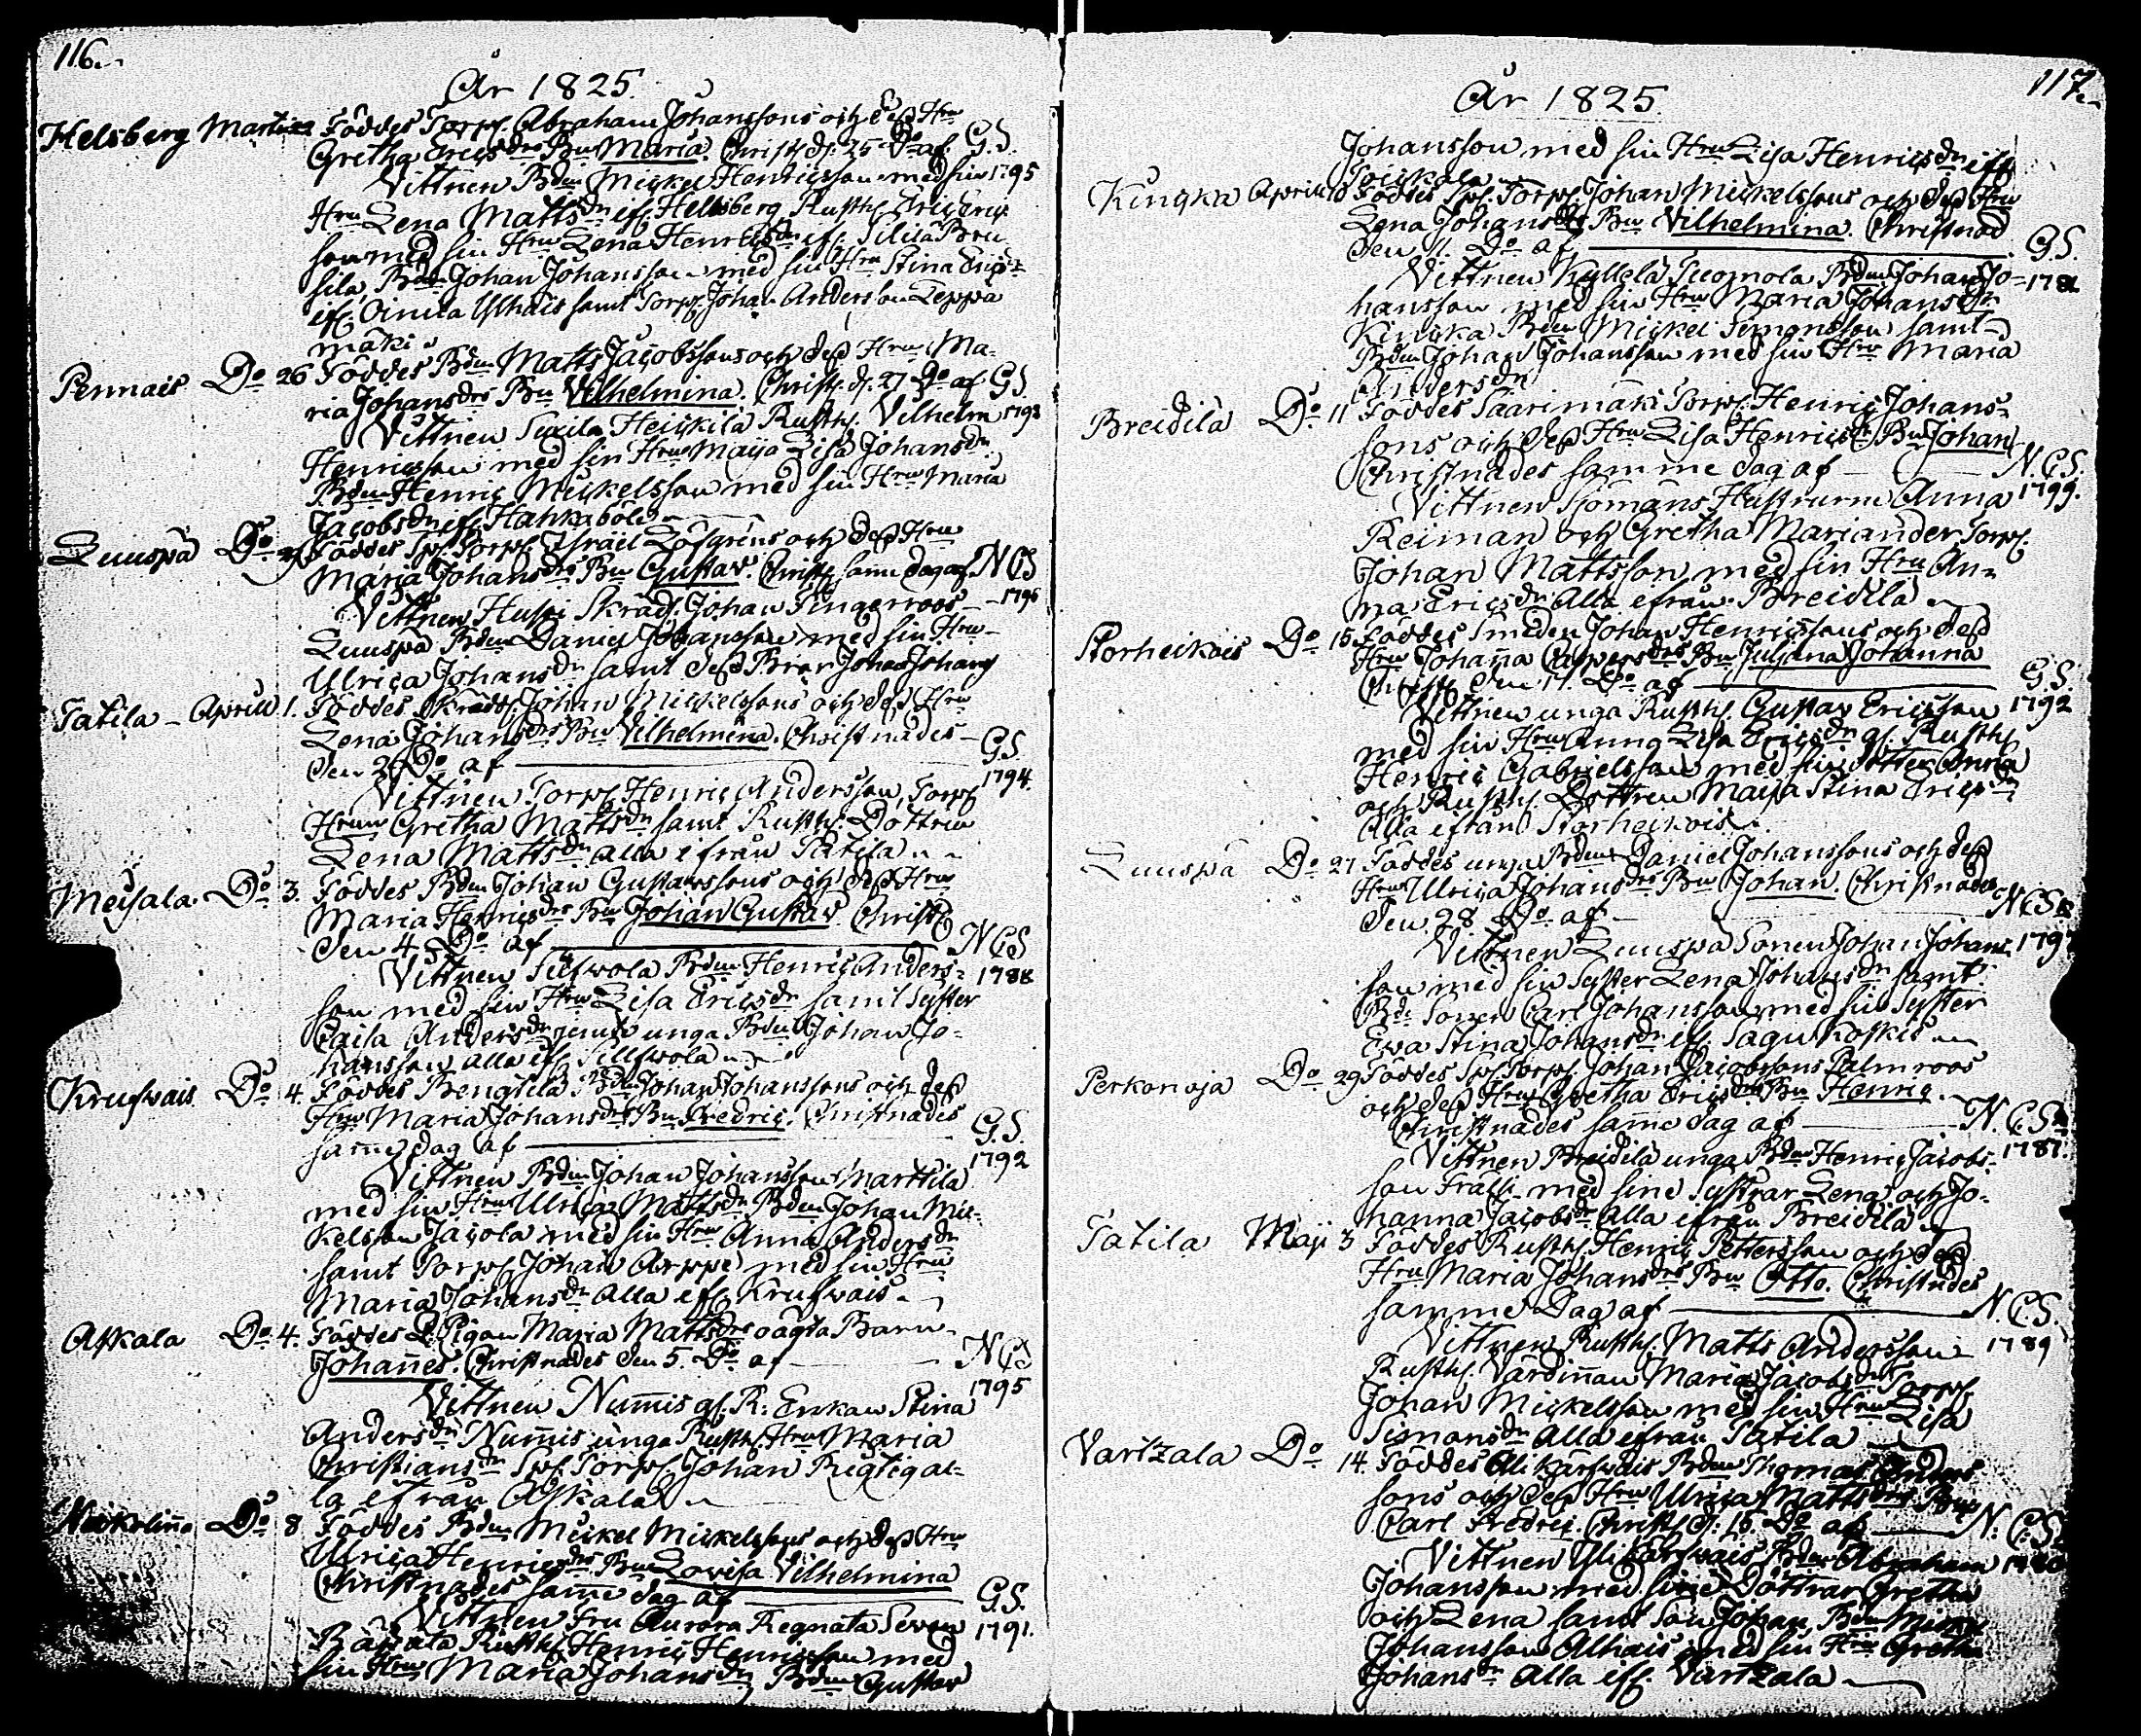 116.
År 1825.
Helsberg Martius Föddes Torp. Abraham Johanssons och dess Hru
Gretha Ericsdrs Bn Maria. Christ. d. 25 Do af G.S.
Vittnen Bden Mickel Henricsson med sin 1795
Hru Lena Mattsdr ifr. Helsberg Rusth. Eric Eric
son med sin Hru Lena Henricsdr ifr.
sila, Bden Johan Johansson med sin Hru Stina Ericsdr
samt Torp. Johan Andersson Leppä
mäki
Pennais Do 26 Föddes Bden Matts Jacobssons och dess Hru Ma-
ria Johansdrs Bn Vilhelmina. Christ. d. 27 Do af GS
Vittnen Heickilä Rusth. Vilhelm 1793
Henricsson med sin Hru Maja Lisa Johansdr
Bden Henric Mickelsson med sin Hru Maria
Jacobsdr ifr. Hahkaböle
Luuspä Do Föddes Spl. Torp. Israel Löfgrens och dess Hru
Maria Johansdrs Bn Gustav. Christ. samme dag af NCS
Vittnen Hussi Skrädd. Johan Tingerroos 1796
Luuspä Bden Daniel Johansson med sin Hru
Ulrica Johansdr samt dess Bror Johan Johans
Tatila Aprill 1. Föddes Skrädd. Johan Mickelssons och dess Hru
Lena Johansdrs Bn Vilhelmina. Christnades
den 2 Do af G.S.
Vittnen Torp. Henric Andersson, Torp. 1794.
Hrun Gretha Mattsdr samt Rusth. Dottren
Lena Mattsdr alla ifrån Tatila
Meisala Do 3. Föddes Bden Johan Gustavssons och dess Hru
Maria Henricsdrs Bn Johan Gustav. Christ.
den 4. Do af NCS
Vittnen Sillswola Bden Henric Anders- 1788
son med sin Hru Lisa Ericsdr samt Syster
Caisa Andersdr unga Bden Johan Jo-
hansson alla ifr. Sillswola
Kruswais Do 4. Föddes Bengtilä Bden Johan Johanssons och dess
Hru Maria Johansdrs Bn Fredric. Christnades
samme dag af G.S.
Vittnen Bden Johan Johansson Marttila 1792
med sin Hru Ulrica Mattsdr Bden Johan Mic-
kelsson Jacola med sin Hru Anna Andersdr
samt Torp. Johan Arppe med sin Hru
Maria Johansdr Alla ifr. Kruswais
Askala Do 4. Föddes Pigan Maria Mattsdrs oägta Barn
Johannes. Christnades den 5. Do af NCS
Vittnen Nummis gl. R: Enkan Stina 1795
Andersdr Nummis unga Rusth. Hru Maria
Christiansdr Spl. Torp. Johan Rigtigal-
la ifrån Askala
Do 8 Föddes Bden Mickel Mickelssons och dess Hru
Ulrica Henricsdrs Bn Lovisa Vilhelmina
Christnades samme dag af G.S.
Vittnen Fru Aurora Regnata Seven 1791.
Rusth. Henric Henricsson med
sin Hru Maria Johansdr Bden Gustav
117.
År 1825.
Johansson med sin Hru Lisa Henricsdr ifr.
Soickala
Kungka Aprill 10 Föddes Spl. Torp. Johan Mickelssons och dess Hru
Lena Johansdrs Bn Vilhelmina. Christnad
den 11. Do af GS.
Vittnen Kyllelä Bden Johan Jo-
hansson med sin Hru Maria Johansdr
Bden Mickel Simonsson samt
Bden Johan Johansson med sin Hru Maria
Andersdr
Breidilä Do 11 Föddes Saarimäki Torp. Henric Johans-
sons och dess Hru Lisa Henricsdr Bn Johan
Christnades samme dag af N.C.S.
Vittnen Sjömans Hustrurne Anna 1799.
Reiman och Gretha Mariander Torp.
Johan Mattsson med sin Hru An-
na Ericsdr Alla ifrån Breidilä
Storheikois Do 15. Föddes Smeden Johan Henricssons och dess
Hru Johanna Caspersdrs Bn Juliana Johanna
Christ. den 17. Do af G.S.
Vittnen unga Rusth. Gustav Ericsson 1792
med sin Hru Anna Lisa Ericsdr gl. Rusth.
Henric Gabrielsson med sin dotter Anna
och Rusth. Dottren Maja Stina Ericsdr
Alla ifrån Storheikois
Luuspä Do 27 Föddes unga Bden Daniel Johanssons och dess
Hru Ulrica Johansdrs Bn Johan. Christnades
den 28 Do af NCS.
Vittnen Luuspä Sonen Johan Johans- 1797
son med sin Syster Lena Johansdr samt
Bde Sonen Carl Johansson med sin Syster
Ewa Stina Johansdr ifr. Sagu Koskis
Perkonoja Do 29 Föddes Spl. Torp. Johan Jacobssons Palmroos
och dess Hru Gretha Ericsdrs Bn Henric.
Christnades samme dag af N.C.S.
Vittnen Breidilä unga Bden Henric Jacobs- 1787.
son Frassi med sine Systrar Lena och Jo-
hanna Jacobsdr Alla ifrån Breidilä
Tatila Maji 3 Föddes Rusth. Henric Pettersson och dess
Hru Maria Johansdrs Bn Otto. Christnades
samme Dag af N.C.S.
Vittnen Rusth. Matts Andersson 1789
Rusth. Värdinnan Maria Jacobsdr Torp.
Johan Mickelsson med sin Hru Lisa
Simonsdr Alla ifrån Tatila
Vartzala Do 14. Föddes Ali Karswais Bden Thomas Anders
sons och dess Hru Ulrica Mattsdrs Bn
Carl Fredric. Christ. d. 15. Do af N.C.S.
Vittnen Yli Karswais Bden Abraham
Johansson med sine Döttrar Gretha
och Lena samt Son Johan Bden
Johansson Alhais med sin Hru Gretha
Johansdr Alla ifr. Vartzala